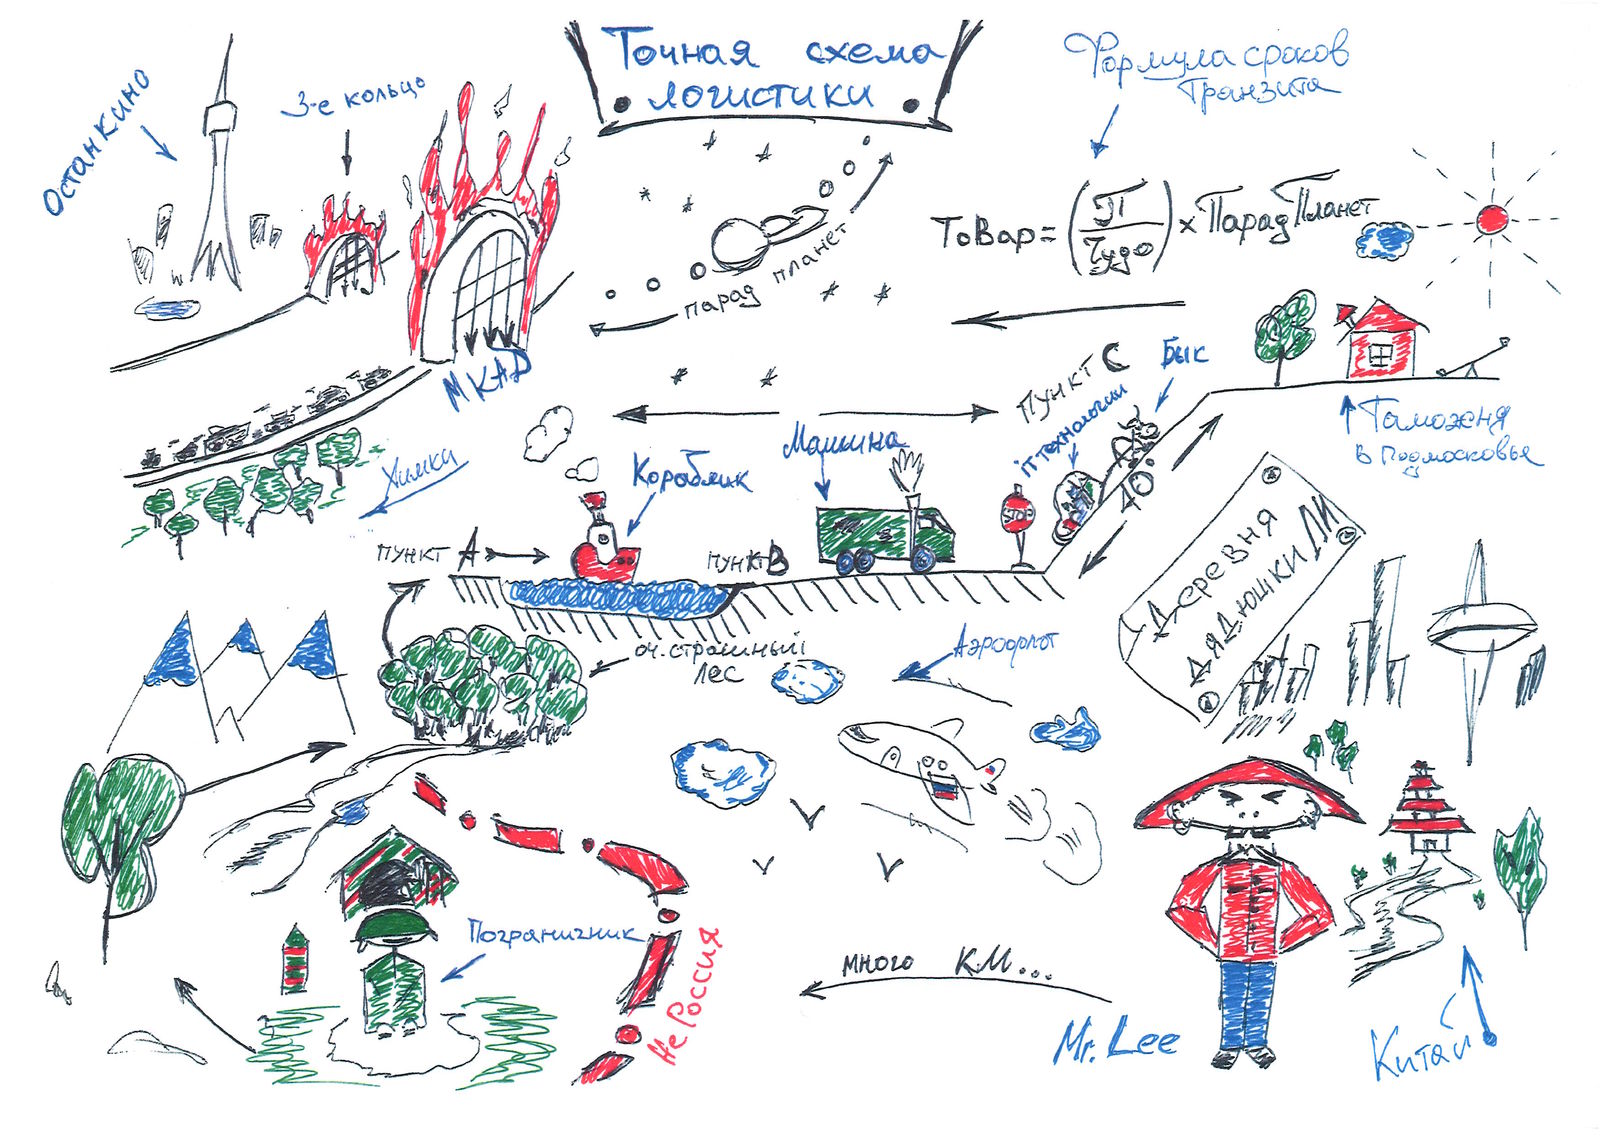 Точная схема
логистики
Формула сроков
Транзита
Останкино
3-е кольцо
ТоВар = (П / Чудо) × Парад Планет
парад планет
МКАД
Химки
Пункт С
Бык
IT технологии
Машина
Кораблик
40°
STOP
Таможня
в Подмосковье
пункт А
пункт В
Деревня
дядюшки ЛИ
оч. страшный
лес
Аэрофлот
Пограничник
Не Россия
много КМ...
Mr. Lee
Китай